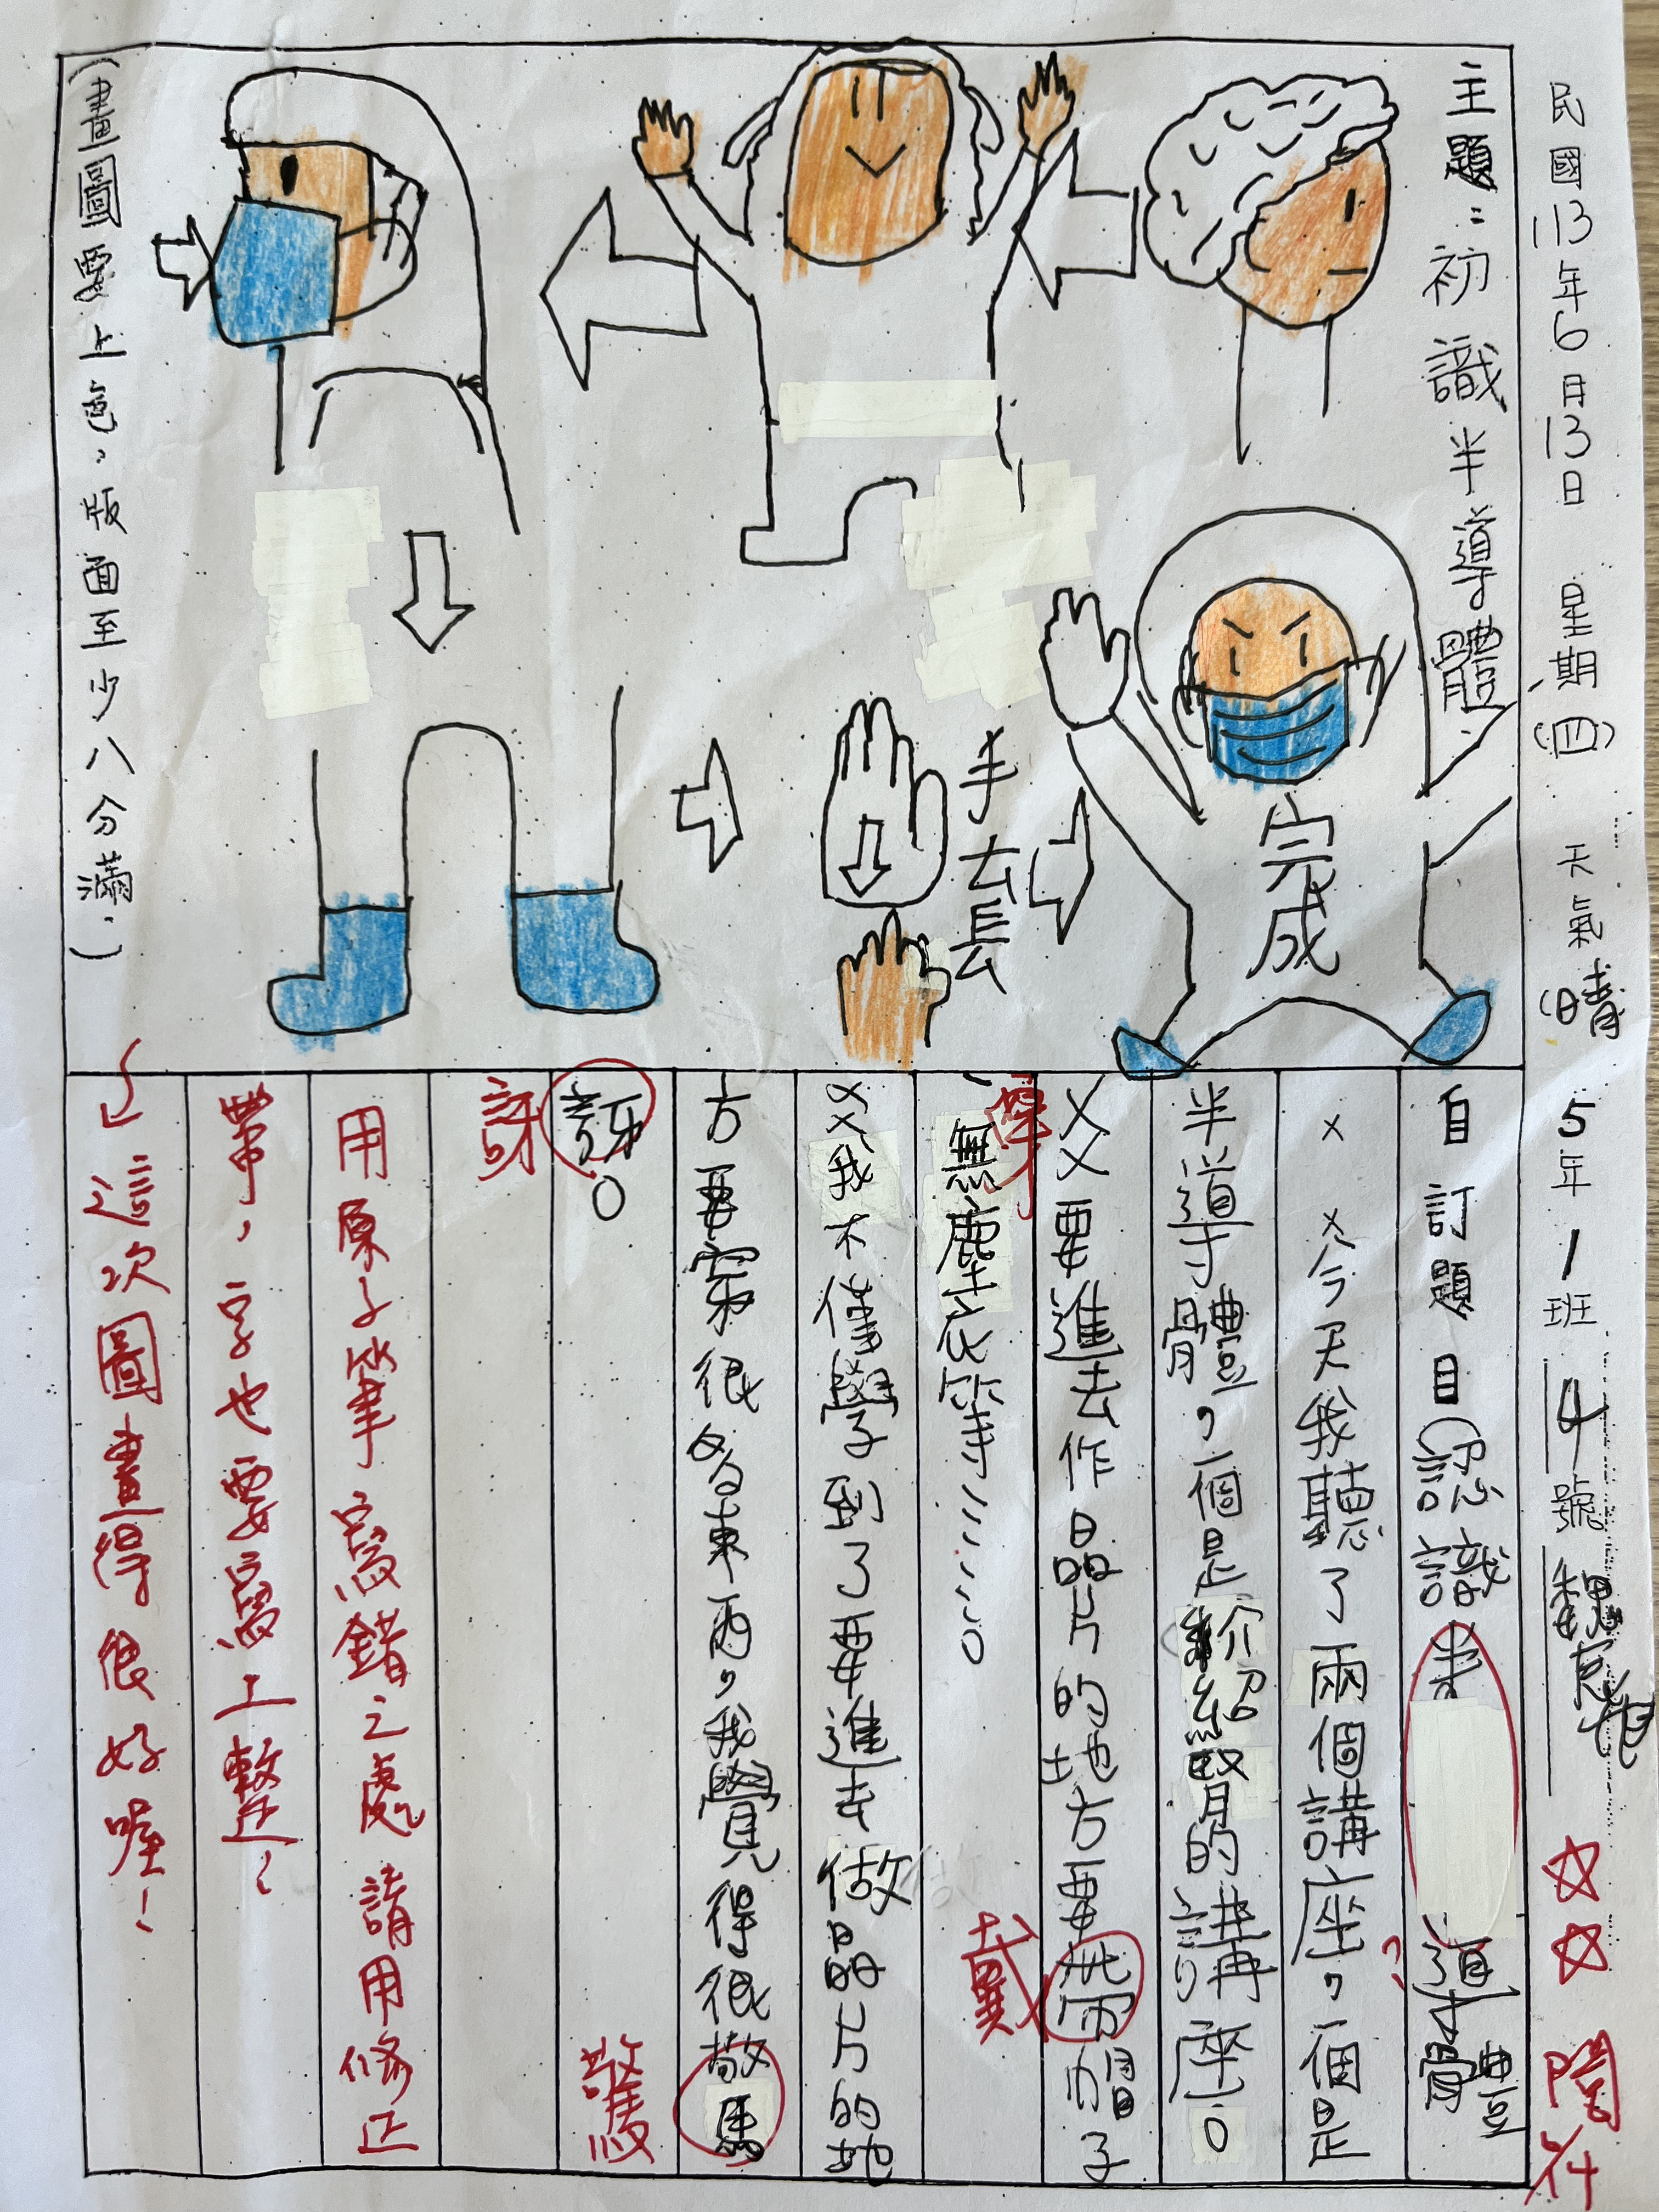 民國113年6月13日 星期(四) 天氣(晴 5年1班 14號
☆☆ 閱 6/14
主題:初識半導體
完成
手去長
(畫圖要上色,版面至少八分滿.)
自訂題目(認識半導體
××今天我聽了兩個講座,一個是
半導體,一個是介紹腎的講座。
××要進去作晶片的地方要帶帽子
戴
、無塵衣等⋯⋯。
××我不僅學到了要進去做晶片的地
方要穿很多東西,我覺得很驚
穿
訝。
驚
訝
用原子筆寫錯之處請用修正
帶,字也要寫工整!
這次圖畫得很好喔!